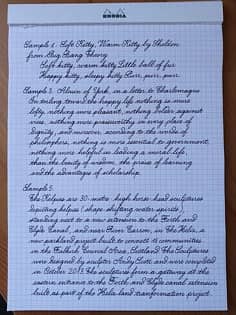 RHODIA
Sample 1: Soft Kitty, Warm Kitty by Sheldon
from Big Bang Theory
Soft kitty, warm kitty Little ball of fur
Happy kitty, sleepy kitty Purr, purr, purr
Sample 2: Alcuin of York, in a letter to Charlemagne
In striving toward the happy life nothing is more
lofty, nothing more pleasant, nothing bolder against
vices, nothing more praiseworthy in every place of
dignity, and moreover, according to the words of
philosophers, nothing is more essential to government,
nothing more helpful in leading a moral life,
than the beauty of wisdom, the praise of learning
and the advantages of scholarship.
Sample 3:
The Kelpies are 30-metre-high horse-head sculptures
depicting kelpies (shape-shifting water spirits),
standing next to a new extension to the Forth and
Clyde Canal, and near River Carron, in The Helix, a
new parkland project built to connect 16 communities
in the Falkirk Council Area, Scotland. The Sculptures
were designed by sculptor Andy Scott and were completed
in October 2013. The sculptures form a gateway at the
eastern entrance to the Forth and Clyde canal extension
built as part of the Helix land transformation project.